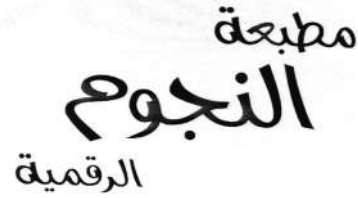 مطبعة
النجوم
الرقمية